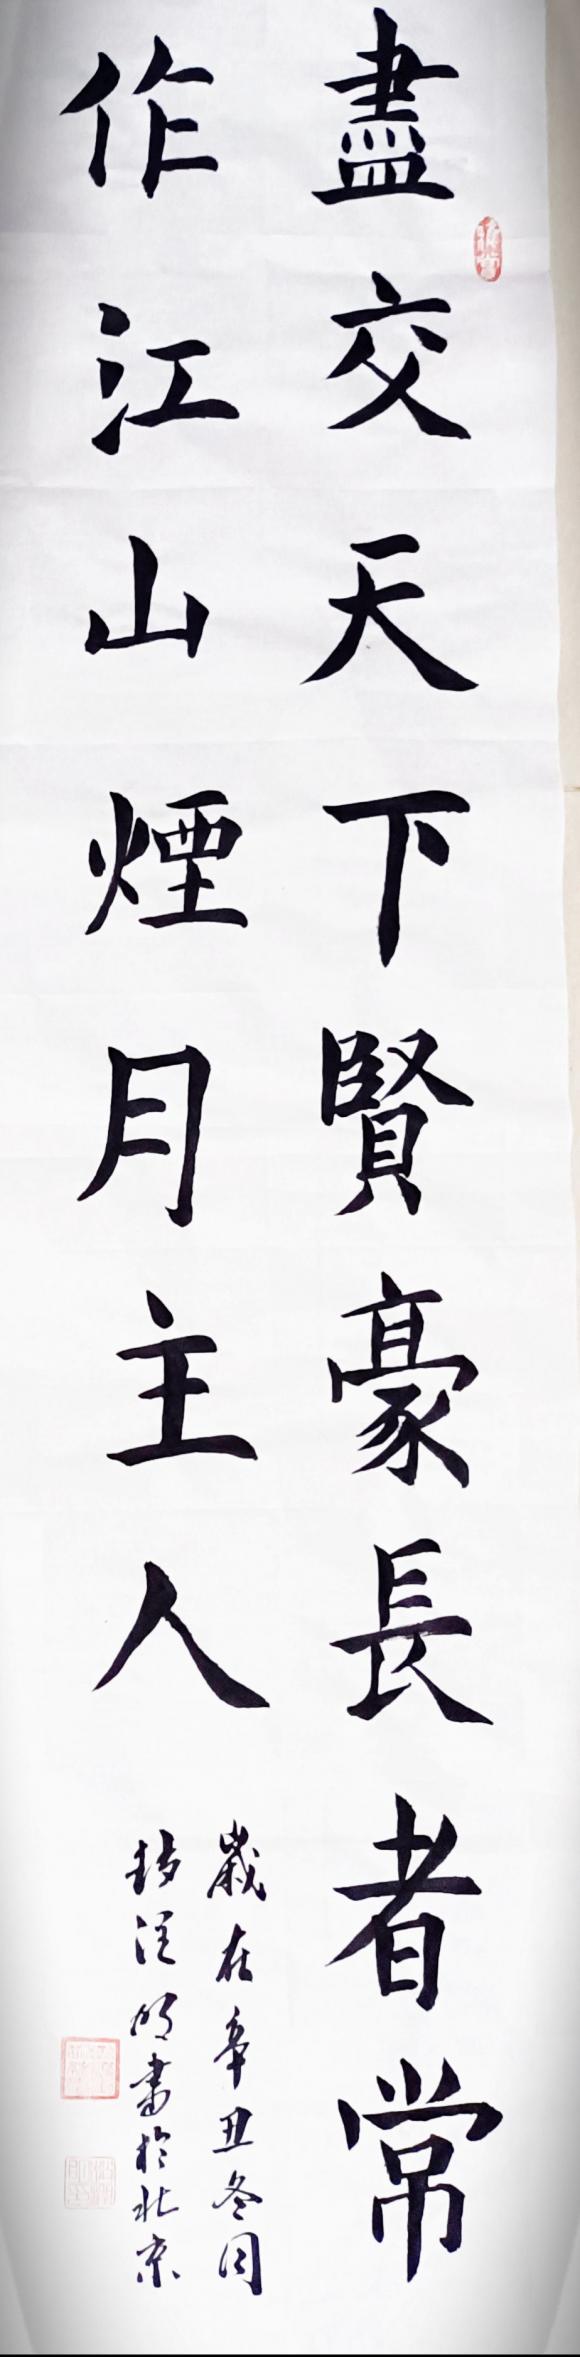 盡交天下賢豪長者常
作江山煙月主人
歲在辛丑冬月
書於北京